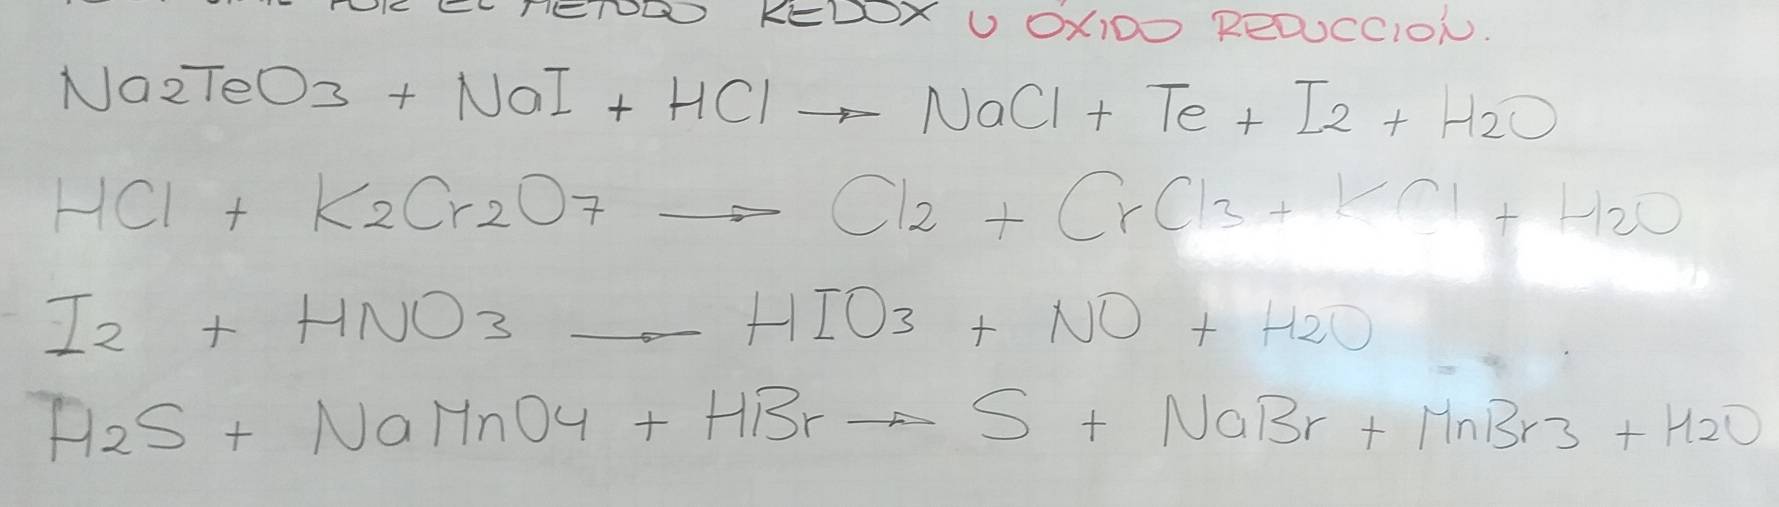 POR EL METODO REDOX U OXIDO REDUCCIÓN.
Na2TeO3 + NaI + HCl → NaCl + Te + I2 + H2O
HCl + K2Cr2O7 → Cl2 + CrCl3 + KCl + H2O
I2 + HNO3 → HIO3 + NO + H2O
H2S + NaMnO4 + HBr → S + NaBr + MnBr3 + H2O